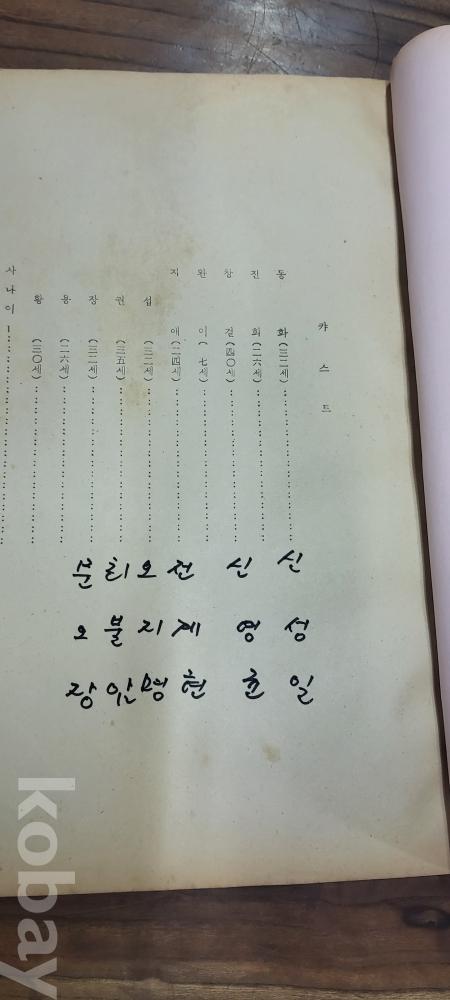 캬스트
동화(三二세)
진희(二六세)
창걸(四〇세)
완이( 七세)
지애(二四세)
섭(三二세)
권(三五세)
장(三二세)
용(二六세)
황(三〇세)
사나이 1
신성일
신영균
전계현
오지명
최불암
문오장
kobay